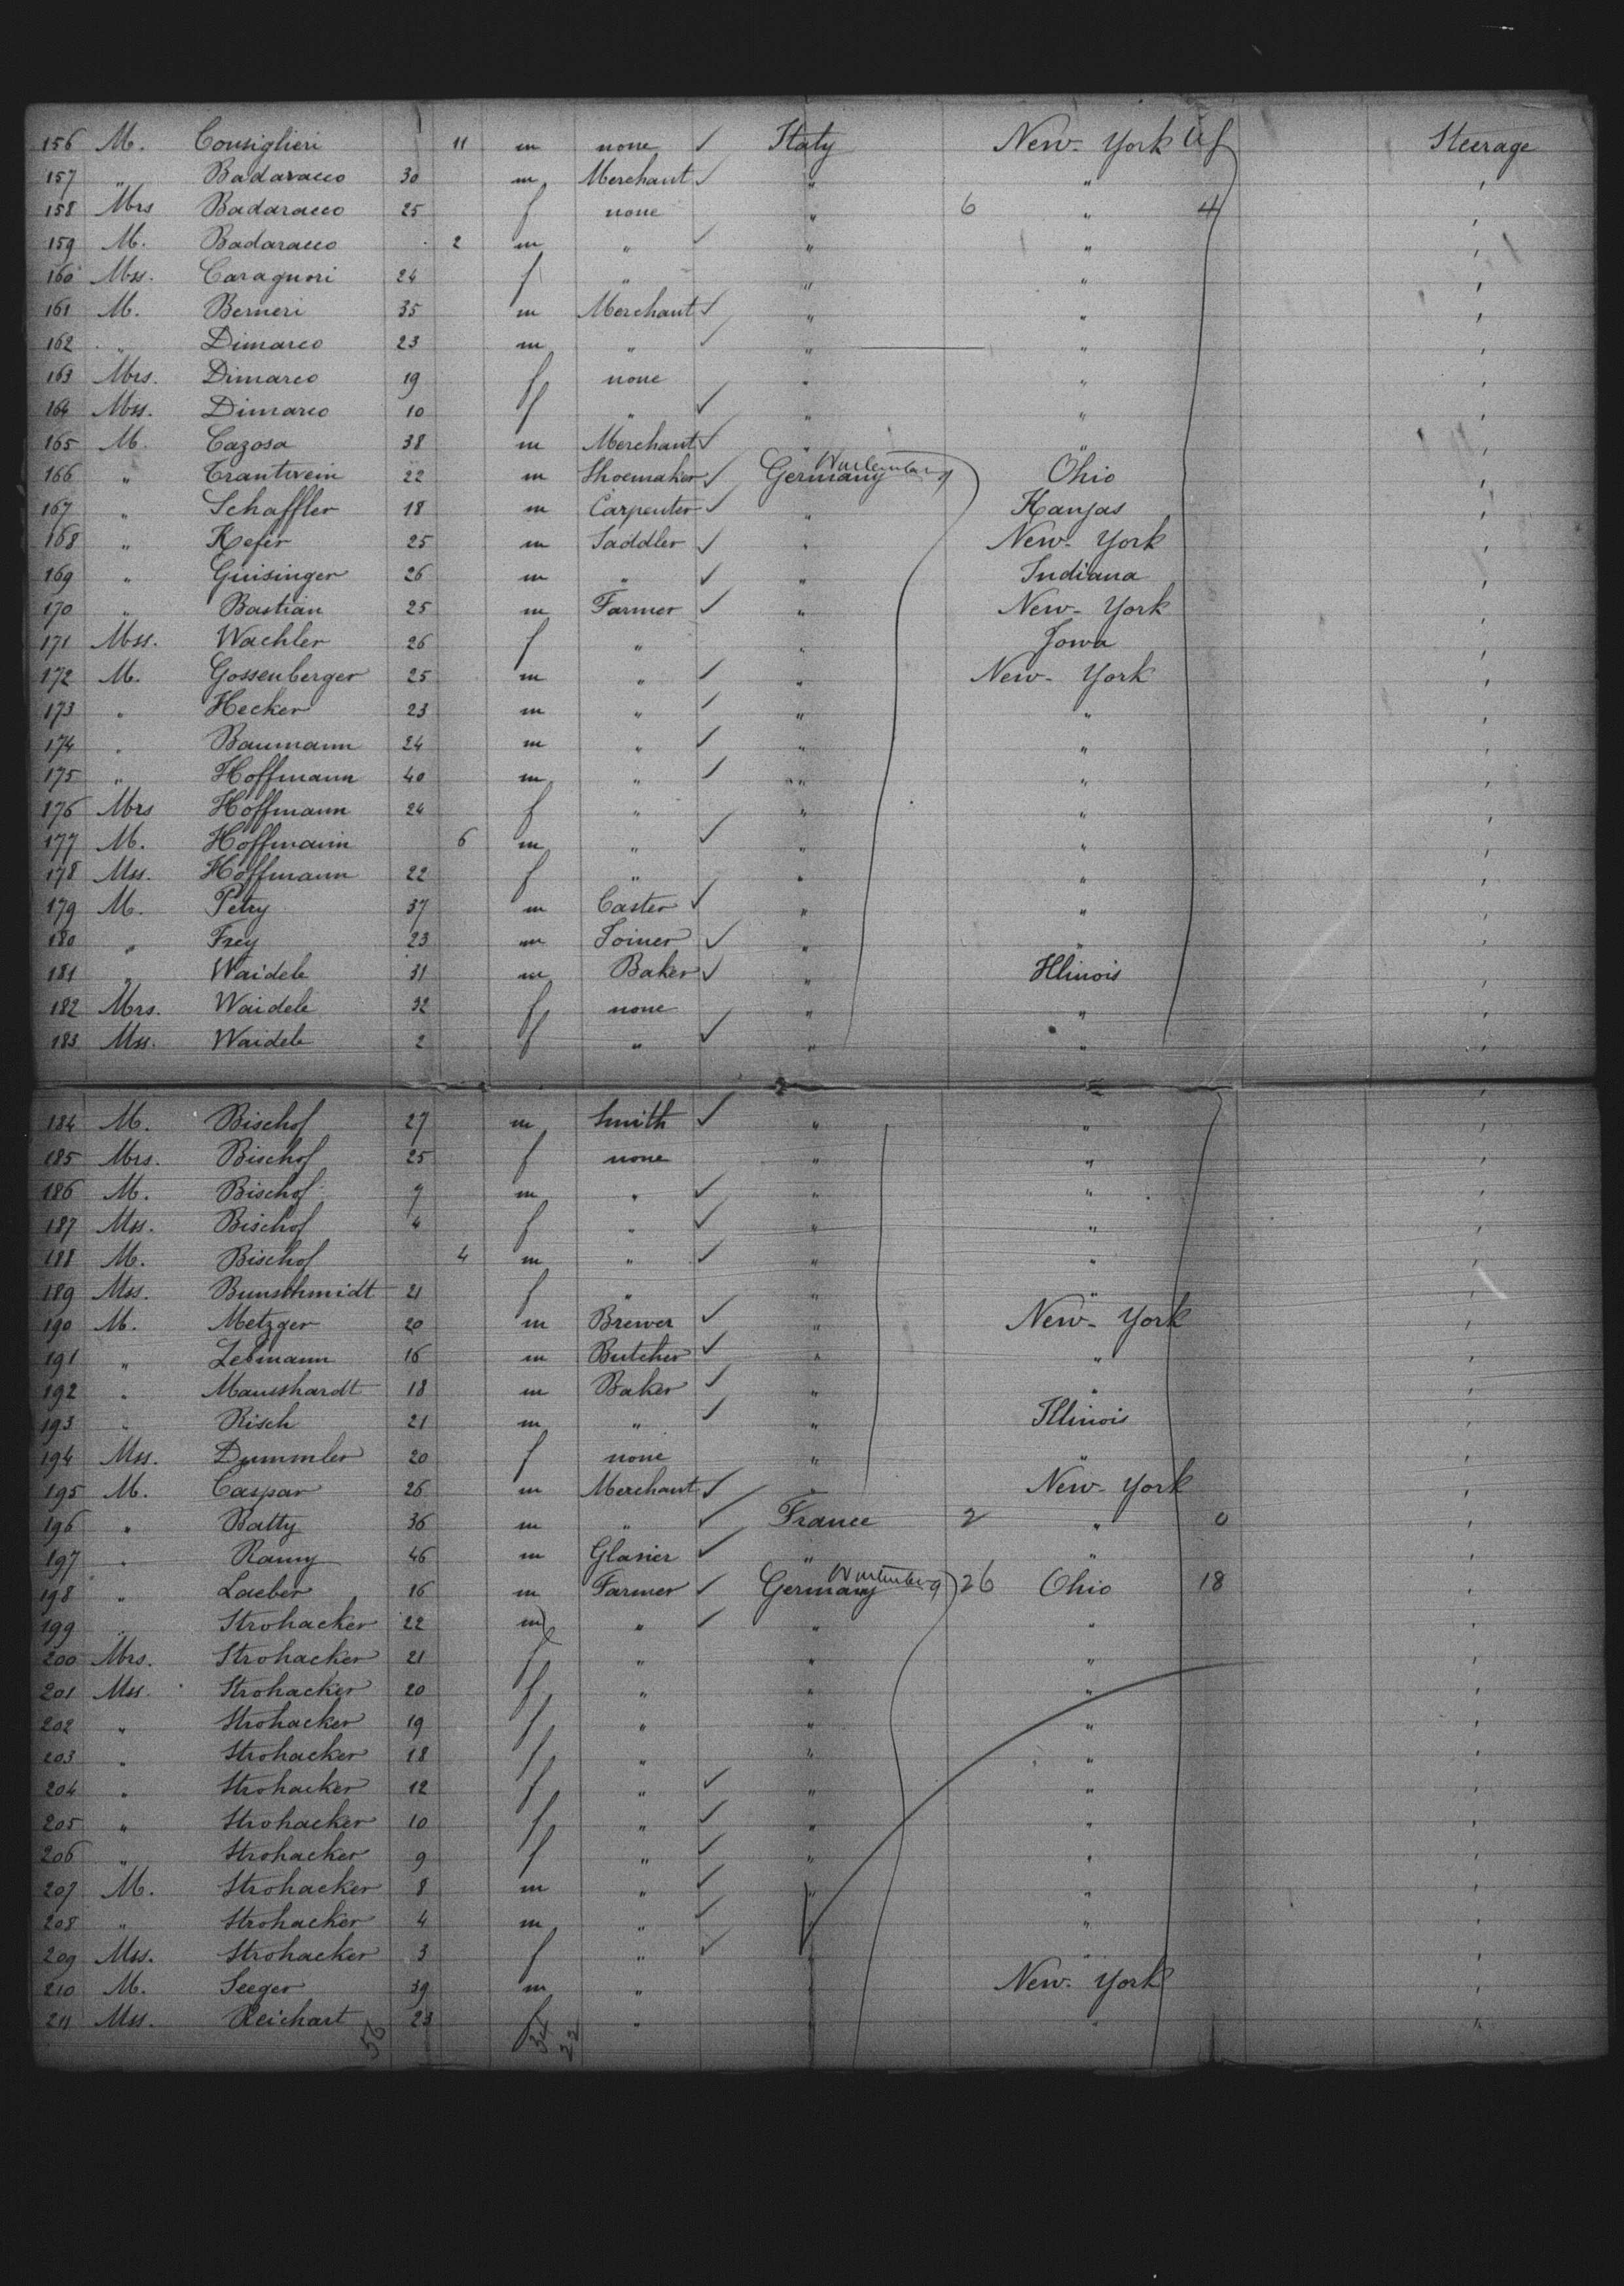 156 M. Consiglieri 11 m none ✓ Italy New-York U S Steerage
157 " Badaracco 30 m Merchant ✓ " " "
158 Mrs Badaracco 25 f none " 6 " 4 "
159 M. Badaracco 2 m " ✓ " " "
160 Mss. Caragnori 24 f " " " "
161 M. Berneri 35 m Merchant ✓ " " "
162 " Dimarco 23 m " ✓ " " "
163 Mrs. Dimarco 19 f none " " "
164 Mss. Dimarco 10 f " ✓ " " "
165 M. Cazosa 38 m Merchant ✓ " " "
166 " Trantwein 22 m Shoemaker ✓ Germany Wurtemberg Ohio "
167 " Schaffler 18 m Carpenter ✓ " Kansas "
168 " Kefer 25 m Saddler ✓ " New-York "
169 " Guisinger 26 m " ✓ " Indiana "
170 " Bastian 25 m Farmer ✓ " New-York "
171 Mss. Wachler 26 f " " Iowa "
172 M. Gossenberger 25 m " ✓ " New-York "
173 " Hecker 23 m " ✓ " " "
174 " Baumann 24 m " ✓ " " "
175 " Hoffmann 40 m " ✓ " " "
176 Mrs Hoffmann 24 f " " " "
177 M. Hoffmann 6 m " ✓ " " "
178 Mss. Hoffmann 22 f " " " "
179 M. Petry 37 m Caster ✓ " " "
180 " Frey 23 m Joiner ✓ " " "
181 " Waidele 31 m Baker ✓ " Illinois "
182 Mrs. Waidele 32 f none " " "
183 Mss. Waidele 2 f " ✓ " " "
184 M. Bischof 27 m Smith ✓ " " "
185 Mrs. Bischof 25 f none " " "
186 M. Bischof 9 m " ✓ " " "
187 Mss. Bischof 4 f " ✓ " " "
188 M. Bischof 4 m " ✓ " " "
189 Mss. Bunschmidt 21 f " " " "
190 M. Metzger 20 m Brewer ✓ " New-York "
191 " Lebmann 16 m Butcher ✓ " " "
192 " Mausshardt 18 m Baker ✓ " " "
193 " Risch 21 m " ✓ " Illinois "
194 Mss. Dummler 20 f none " " "
195 M. Caspar 26 m Merchant ✓ " New-York "
196 " Batty 36 m " ✓ France 2 " 0 "
197 " Ramy 46 m Glasier ✓ " " "
198 " Laeber 16 m Farmer ✓ Germany Wurtemberg 26 Ohio 18 "
199 " Strohacker 22 m " ✓ " " "
200 Mrs. Strohacker 21 f " " " "
201 Mss. Strohacker 20 f " " " "
202 " Strohacker 19 f " " " "
203 " Strohacker 18 f " " " "
204 " Strohacker 12 f " ✓ " " "
205 " Strohacker 10 f " ✓ " " "
206 " Strohacker 9 f " ✓ " " "
207 M. Strohacker 8 m " ✓ " " "
208 " Strohacker 4 m " ✓ " " "
209 Mss. Strohacker 3 f " ✓ " " "
210 M. Seeger 39 m " " New-York "
211 Mss. Reichart 23 f " " " "
56 34 22